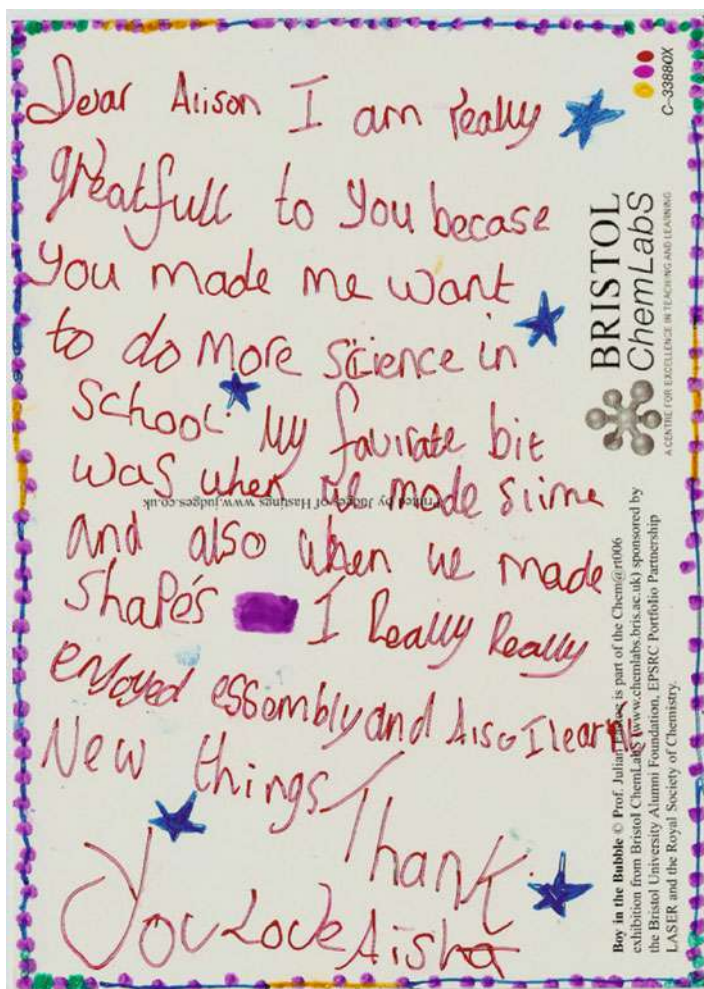 Dear Alison I am really
greatfull to you becase
you made me want
to do more science in
school. My favirate bit
was when we made slime
and also when we made
shape's I Really Really
enjoyed assembly and Also I learnt
New things Thank
You Love Aisha
Printed by Judges of Hastings www.judges.co.uk
C-33880X
BRISTOL
ChemLabS
A CENTRE FOR EXCELLENCE IN TEACHING AND LEARNING
Boy in the Bubble © Prof. Julian is part of the Chem@rt006
exhibition from Bristol ChemLabS (www.chemlabs.bris.ac.uk) sponsored by
the Bristol University Alumni Foundation, EPSRC Portfolio Partnership
LASER and the Royal Society of Chemistry.